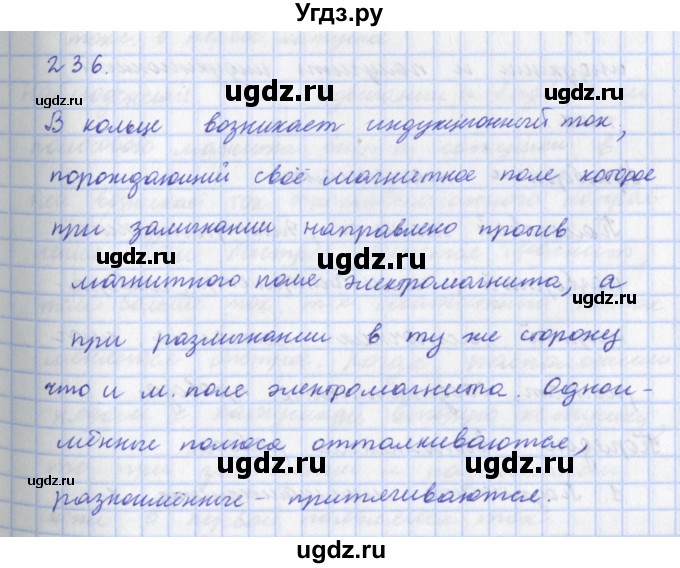 Угдз.ру
236.
ugdz.ru
ugdz.ru
ugdz.ru
В кольце возникает индукционный ток,
порождающий своё магнитное поле которое
при замыкании направлено против
ugdz.ru
ugdz.ru
ugdz.ru
магнитного поле электромагнита, а
при размыкании в ту же сторону
что и м. поле электромагнита. Одной-
мённые полюса отталкиваются,
ugdz.ru
ugdz.ru
ugdz.ru
разноимённые - притягиваются.
ugdz.ru